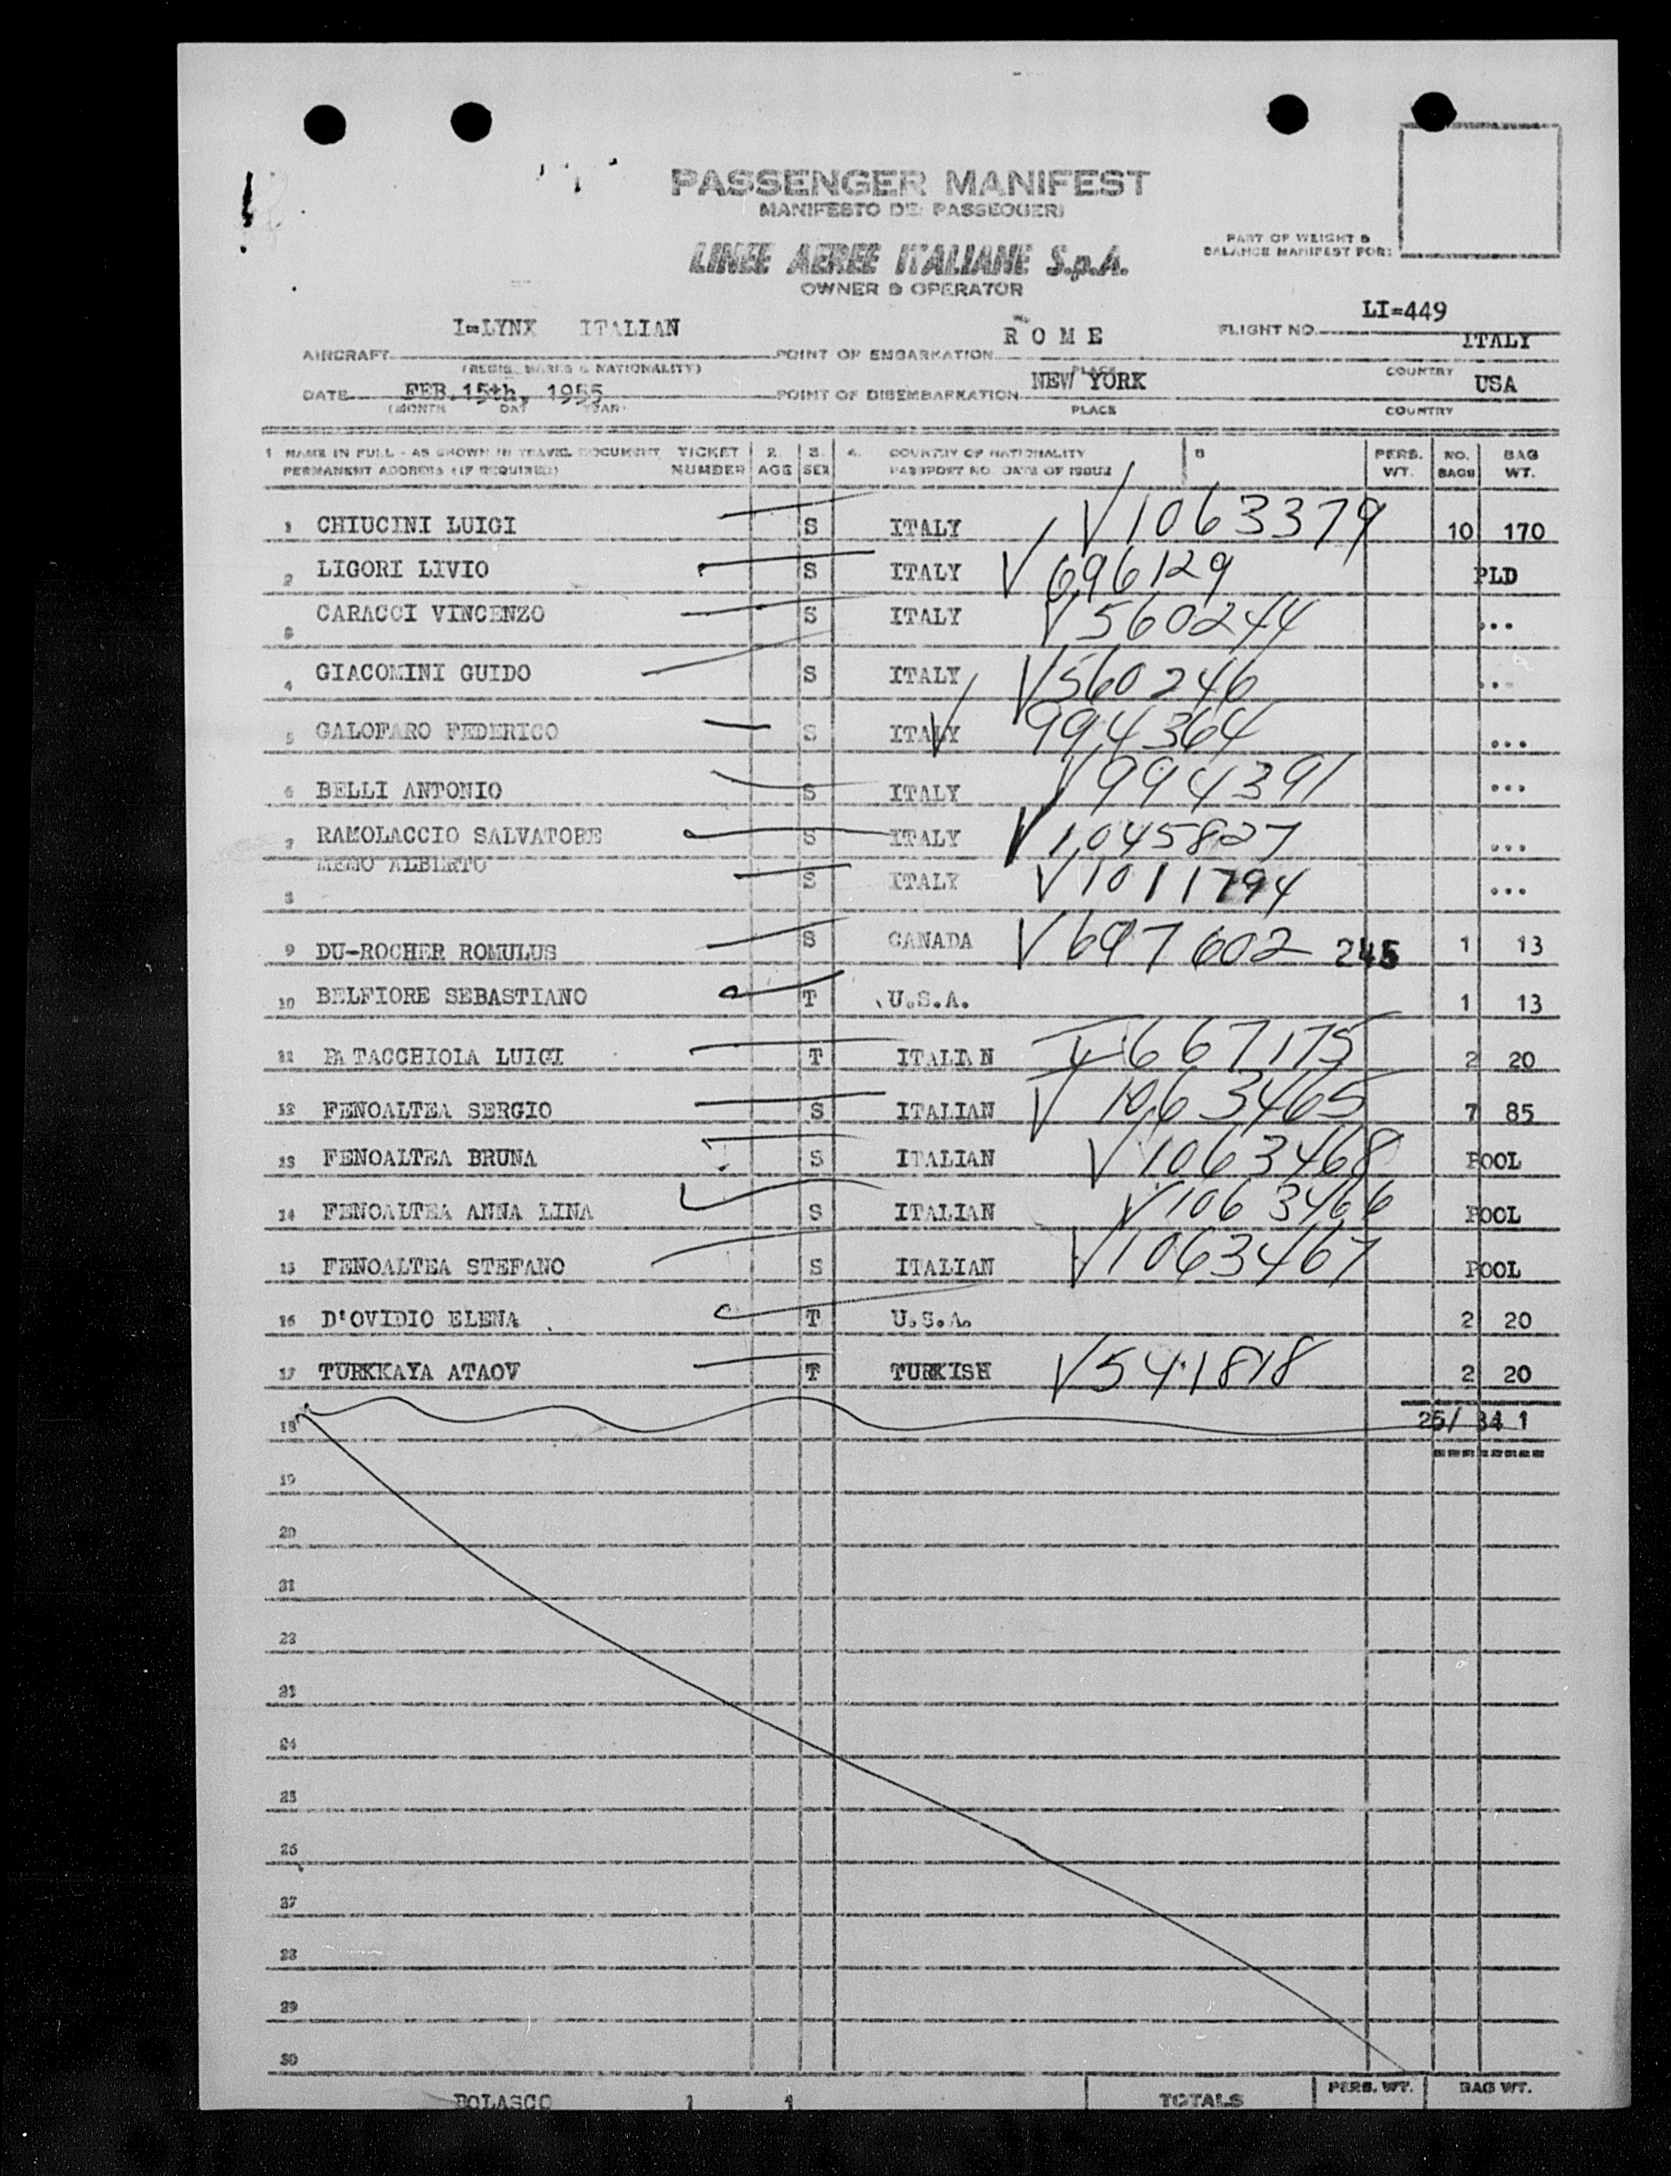 PASSENGER MANIFEST
MANIFESTO DEI PASSEGGERI
LINEE AEREE ITALIANE S.p.A.
OWNER & OPERATOR
PART OF WEIGHT &
BALANCE MANIFEST FOR:
AIRCRAFT I=LYNX ITALIAN POINT OF EMBARKATION R O M E FLIGHT NO. LI=449 ITALY
(REGIS. MARKS & NATIONALITY) PLACE COUNTRY
DATE FEB.15th, 1955 POINT OF DISEMBARKATION NEW YORK USA
(MONTH DAY YEAR) PLACE COUNTRY
1 NAME IN FULL - AS SHOWN IN TRAVEL DOCUMENT TICKET 2. 3. 4. COUNTRY OF NATIONALITY PERS. NO. BAG
PERMANENT ADDRESS (IF REQUIRED) NUMBER AGE SEX PASSPORT NO. DATE OF ISSUE WT. BAGS WT.
1 CHIUCINI LUIGI S ITALY √ 1063379 10 170
2 LIGORI LIVIO S ITALY √ 696129 PLD
3 CARACCI VINCENZO S ITALY √ 560244 ...
4 GIACOMINI GUIDO S ITALY √ 560246 ...
5 GALOFARO FEDERICO S ITALY √ 994364 ...
6 BELLI ANTONIO S ITALY √ 994391 ...
7 RAMOLACCIO SALVATORE S ITALY √ 1045827 ...
8 MEMO ALBERTO S ITALY √ 1011794 ...
9 DU-ROCHER ROMULUS S CANADA √ 697602 245 1 13
10 BELFIORE SEBASTIANO T U.S.A. 1 13
11 PATACCHIOLA LUIGI T ITALIAN 667175 2 20
12 FENOALTEA SERGIO S ITALIAN √ 1063465 7 85
13 FENOALTEA BRUNA S ITALIAN √ 1063468 POOL
14 FENOALTEA ANNA LINA S ITALIAN √ 1063466 POOL
15 FENOALTEA STEFANO S ITALIAN √ 1063467 POOL
16 D'OVIDIO ELENA T U.S.A. 2 20
17 TURKKAYA ATAOV T TURKISH √ 541818 2 20
18 25/ 341
19
20
21
22
23
24
25
26
27
28
29
30
BOLASCO 1 1 TOTALS PERS. WT. BAG WT.